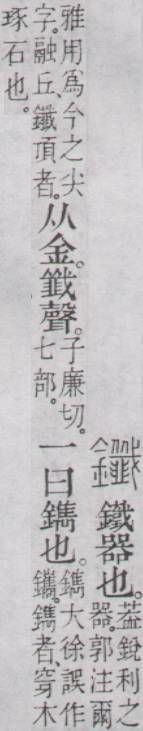 鑯 鐵器也。蓋銳利之器。郭注爾
雅用爲今之尖字。融丘、鑯頂者。从金韱聲。子廉切。七部。一曰鐫也。鐫大徐誤作鑴。鐫者、穿木
琢石也。